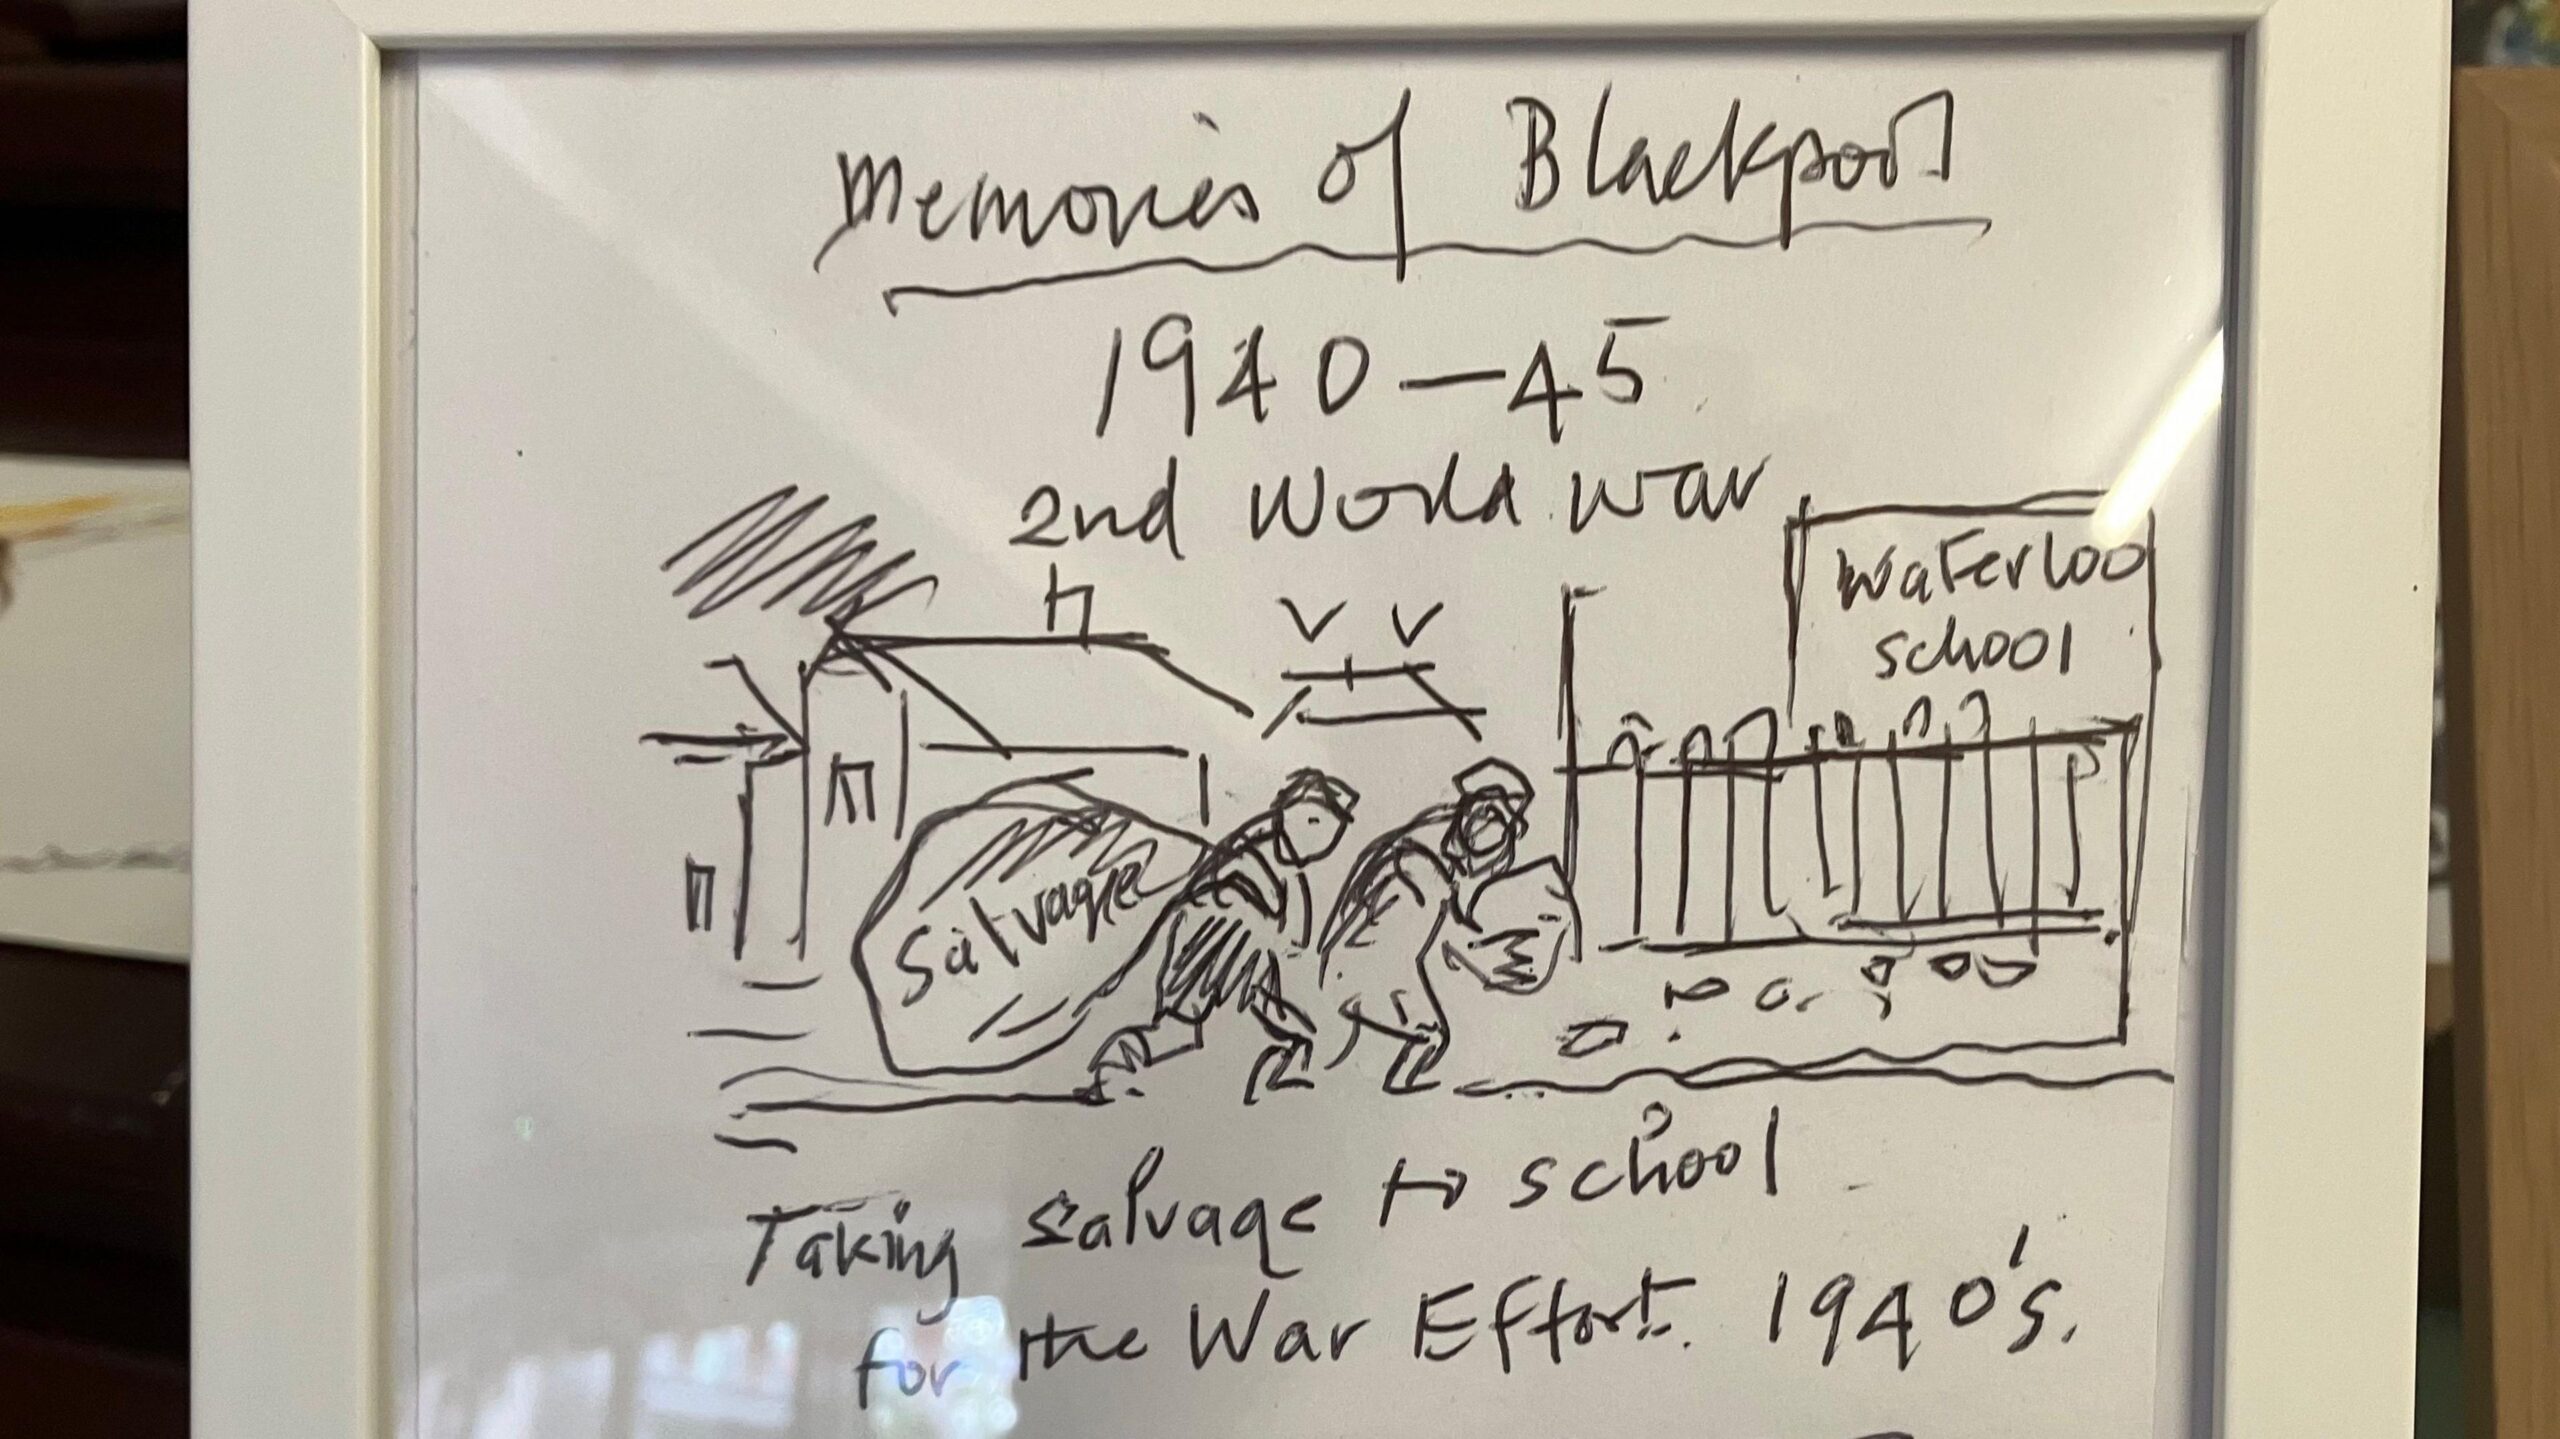 Memories of Blackpool
1940-45
2nd World War
Waterloo
School
Salvage
Taking salvage to school
for the War Effort. 1940's.